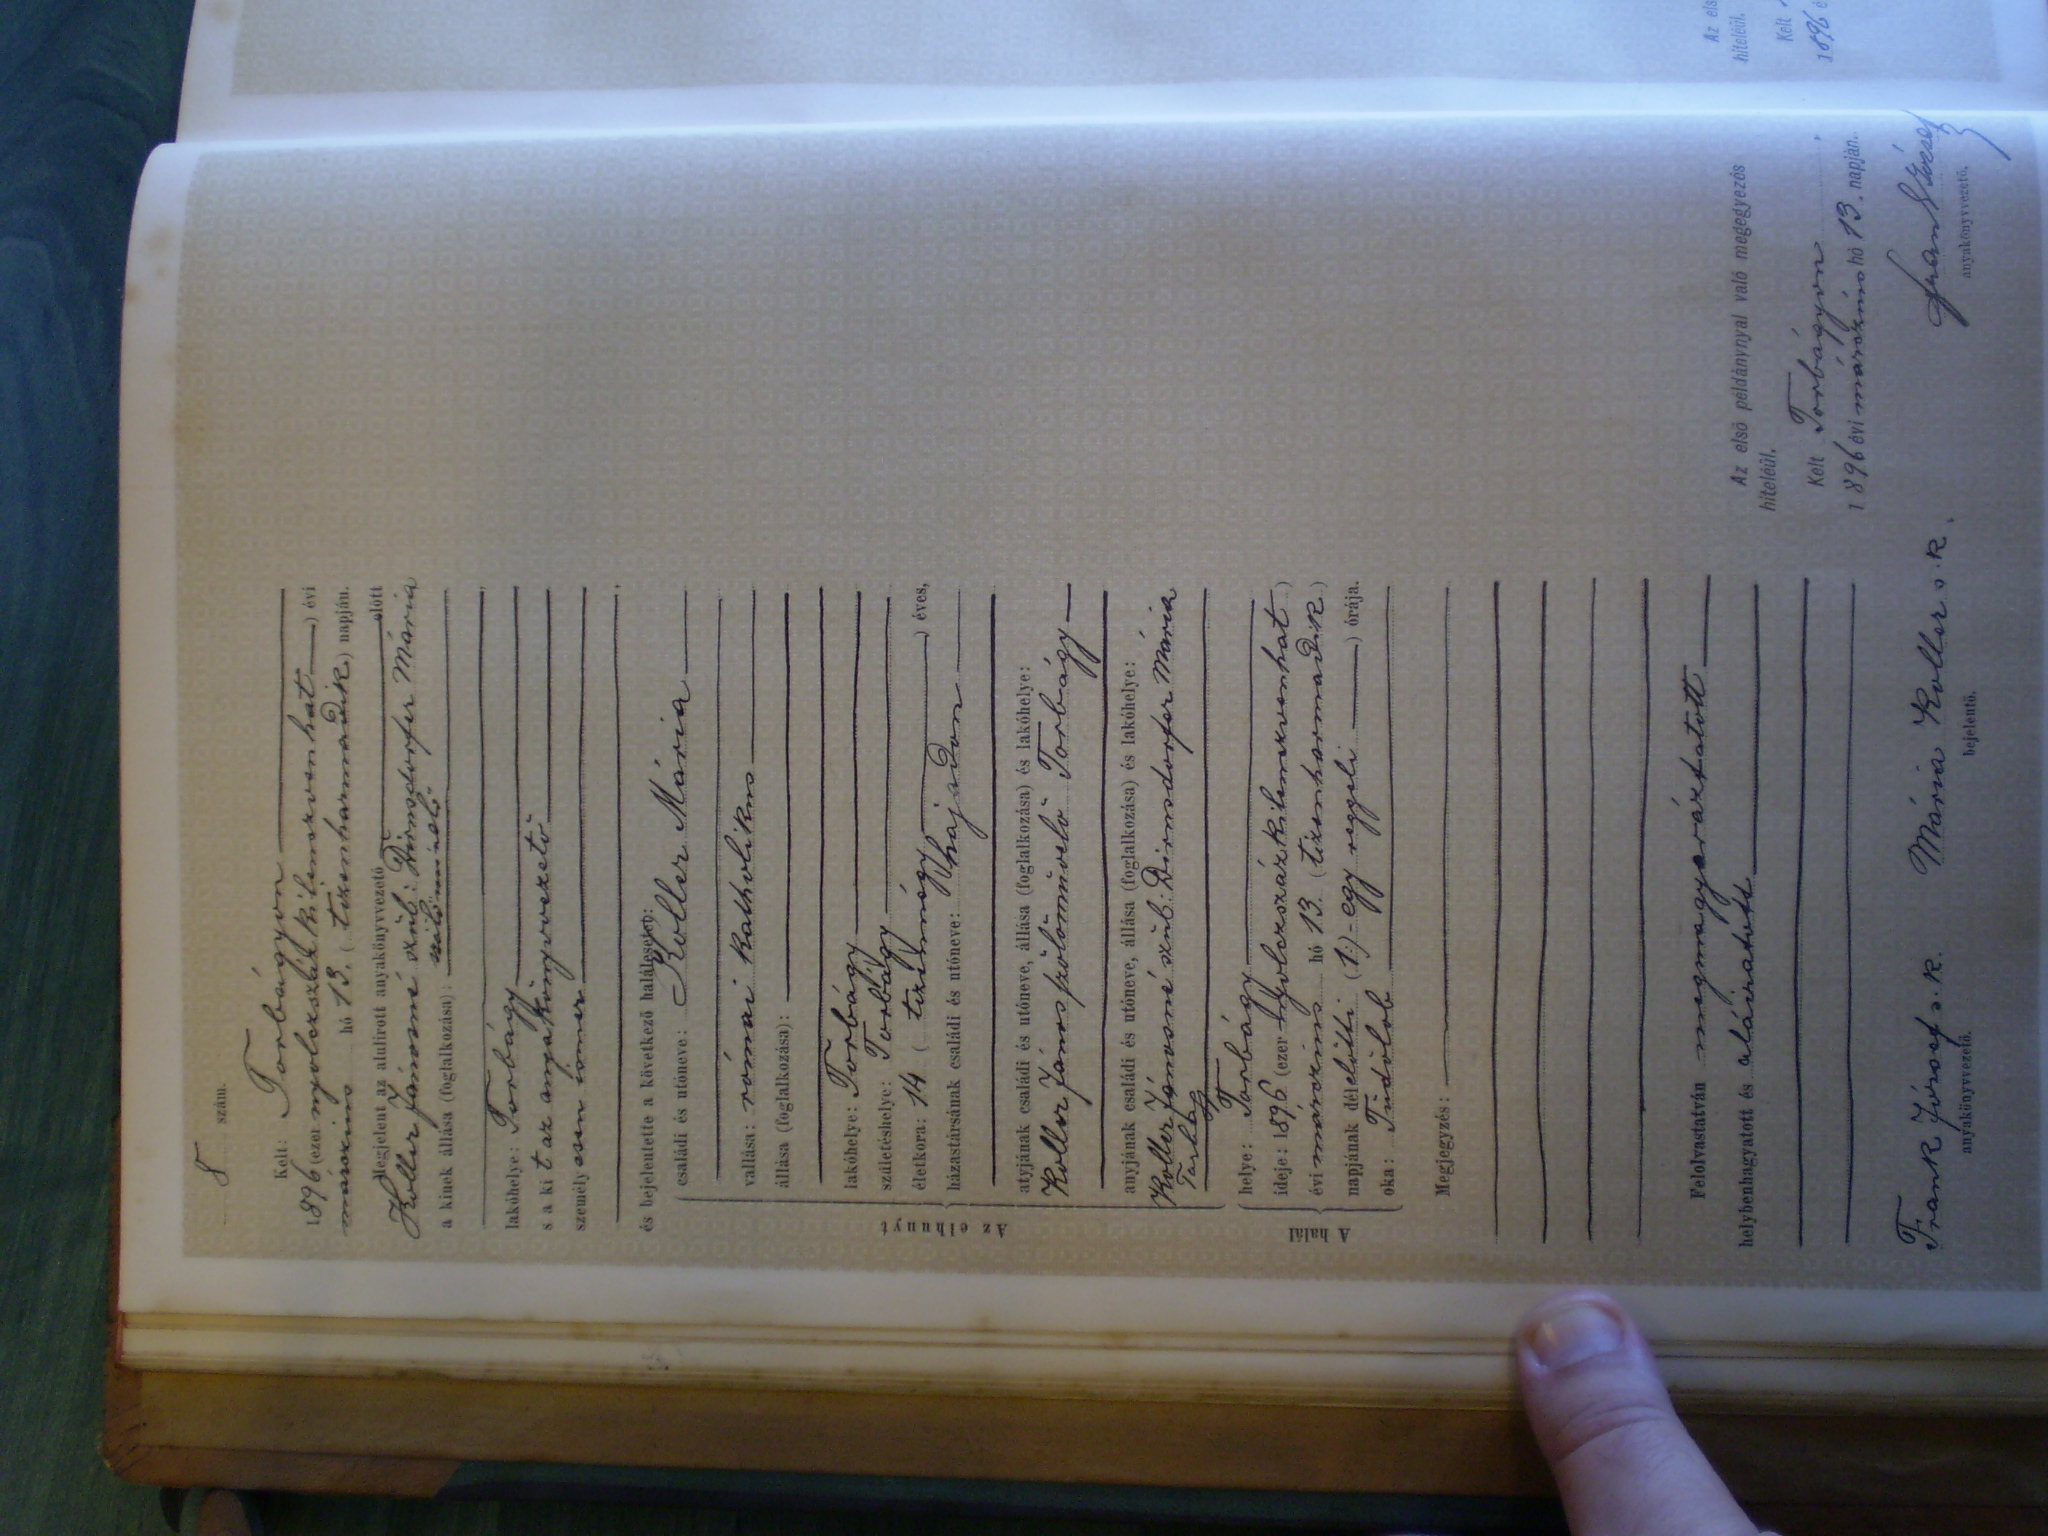 8 szám.
Kelt: Torbágyon
1896 (ezer nyolczszázkilenczvenhat) évi
márczius hó 13. (tizenharmadik) napján.
Megjelent az alulirott anyakönyvvezető előtt
Koller Jánosné szül: Dirnsdorfer Mária
a kinek állása (foglalkozása): szőlőmívelő
lakóhelye: Torbágy
s a ki t az anyakönyvvezető
személyesen ismer
és bejelentette a következő halálesetet:
Az elhunyt
családi és utóneve: Koller Mária
vallása: római katholikus
állása (foglalkozása):
lakóhelye: Torbágy
születéshelye: Torbágy
életkora: 14 (tizennégy) éves,
házastársának családi és utóneve: hajadon
atyjának családi és utóneve, állása (foglalkozása) és lakóhelye:
Koller János szőlőmívelő Torbágy
anyjának családi és utóneve, állása (foglalkozása) és lakóhelye:
Koller Jánosné szül: Dirnsdorfer Mária
A halál
helye: Torbágy
ideje: 1896 (ezer nyolczszázkilenczvenhat)
évi márczius hó 13. (tizenharmadik)
napjának délelőtti (1:)-egy reggeli) órája.
oka: Tüdőlob
Megjegyzés:
Felolvastatván megmagyaráztatott
helybenhagyatott és aláiratott
Frank József s. k.
anyakönyvvezető.
Mária Koller s. k.
bejelentő.
Az első példánynyal való megegyezés
hiteléül.
Kelt Torbágyon
1896 évi márczius hó 13. napján.
Frank József
anyakönyvvezető.
Az els
hiteléül.
Kelt
1896 é